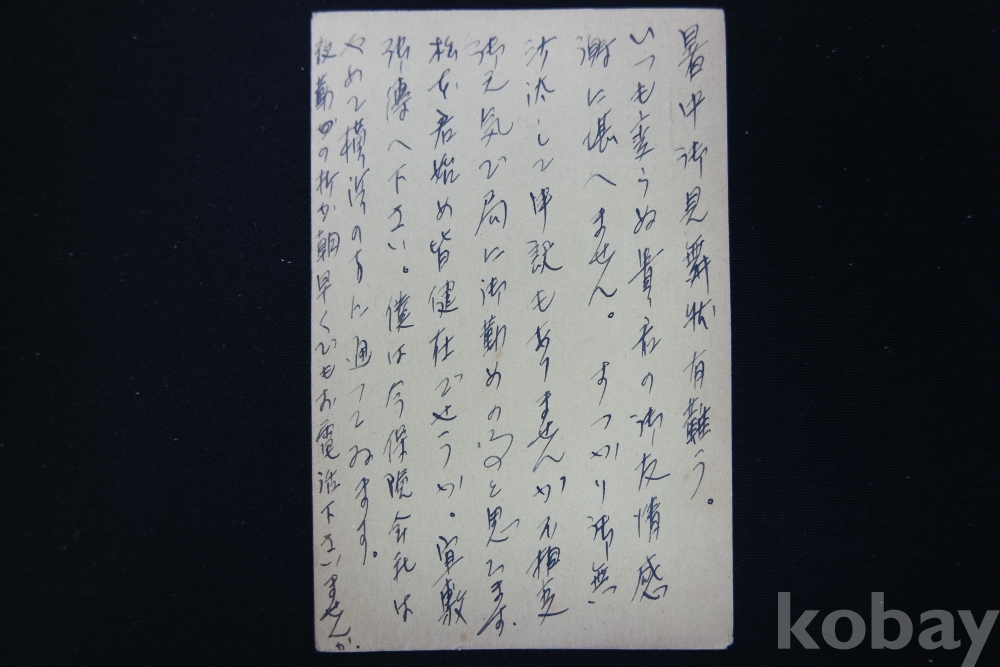 暑中御見舞状有難う。
いつも変らぬ貴君の御友情感
謝に堪へません。すつかり御無
沙汰して申訳もありませんが不相変
御元気で局に御勤めの事と思ひます。
松本君始め皆健在でせうか。宜敷
御傳へ下さい。僕は今保険会社は
やめて横浜の方に通つてゐます。
夜勤の折か朝早くでもお電話下さいませんか。
kobay